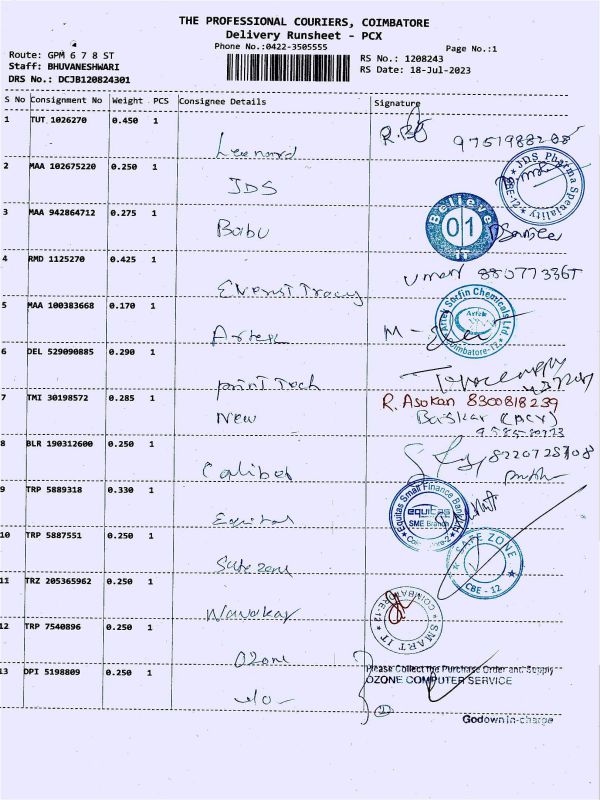 THE PROFESSIONAL COURIERS, COIMBATORE
Delivery Runsheet - PCX
Phone No.:0422-3505555
Page No.:1
Route: GPM 6 7 8 ST
Staff: BHUVANESHWARI
DRS No.: DCJB120824301
RS No.: 1208243
RS Date: 18-Jul-2023
S No Consignment No Weight PCS Consignee Details Signature
1 TUT 1026270 0.450 1
Leonard
2 MAA 102675220 0.250 1
JDS
JDS Pharma Speciality CBE-12
3 MAA 942864712 0.275 1
Babu
Believe 01 IT
4 RMD 1125270 0.425 1
5 MAA 100383668 0.170 1
Artek
Artek Sorfin Chemicals Ltd. Coimbatore-12
6 DEL 529090885 0.290 1
print Tech
7 TMI 30198572 0.285 1
New
R. Asokan 8300818239
Baskar
8 BLR 190312600 0.250 1
Caliber
9 TRP 5889318 0.330 1
Equitas
Equitas Small Finance Bank
equitas
SME Branch
10 TRP 5887551 0.250 1
Safe zone
SAFE ZONE CBE - 12
11 TRZ 205365962 0.250 1
SMART IT
12 TRP 7540896 0.250 1
Ozone
13 DPI 5198809 0.250 1
Please Collect the Purchase Order and Supply
OZONE COMPUTER SERVICE
Godown In-charge